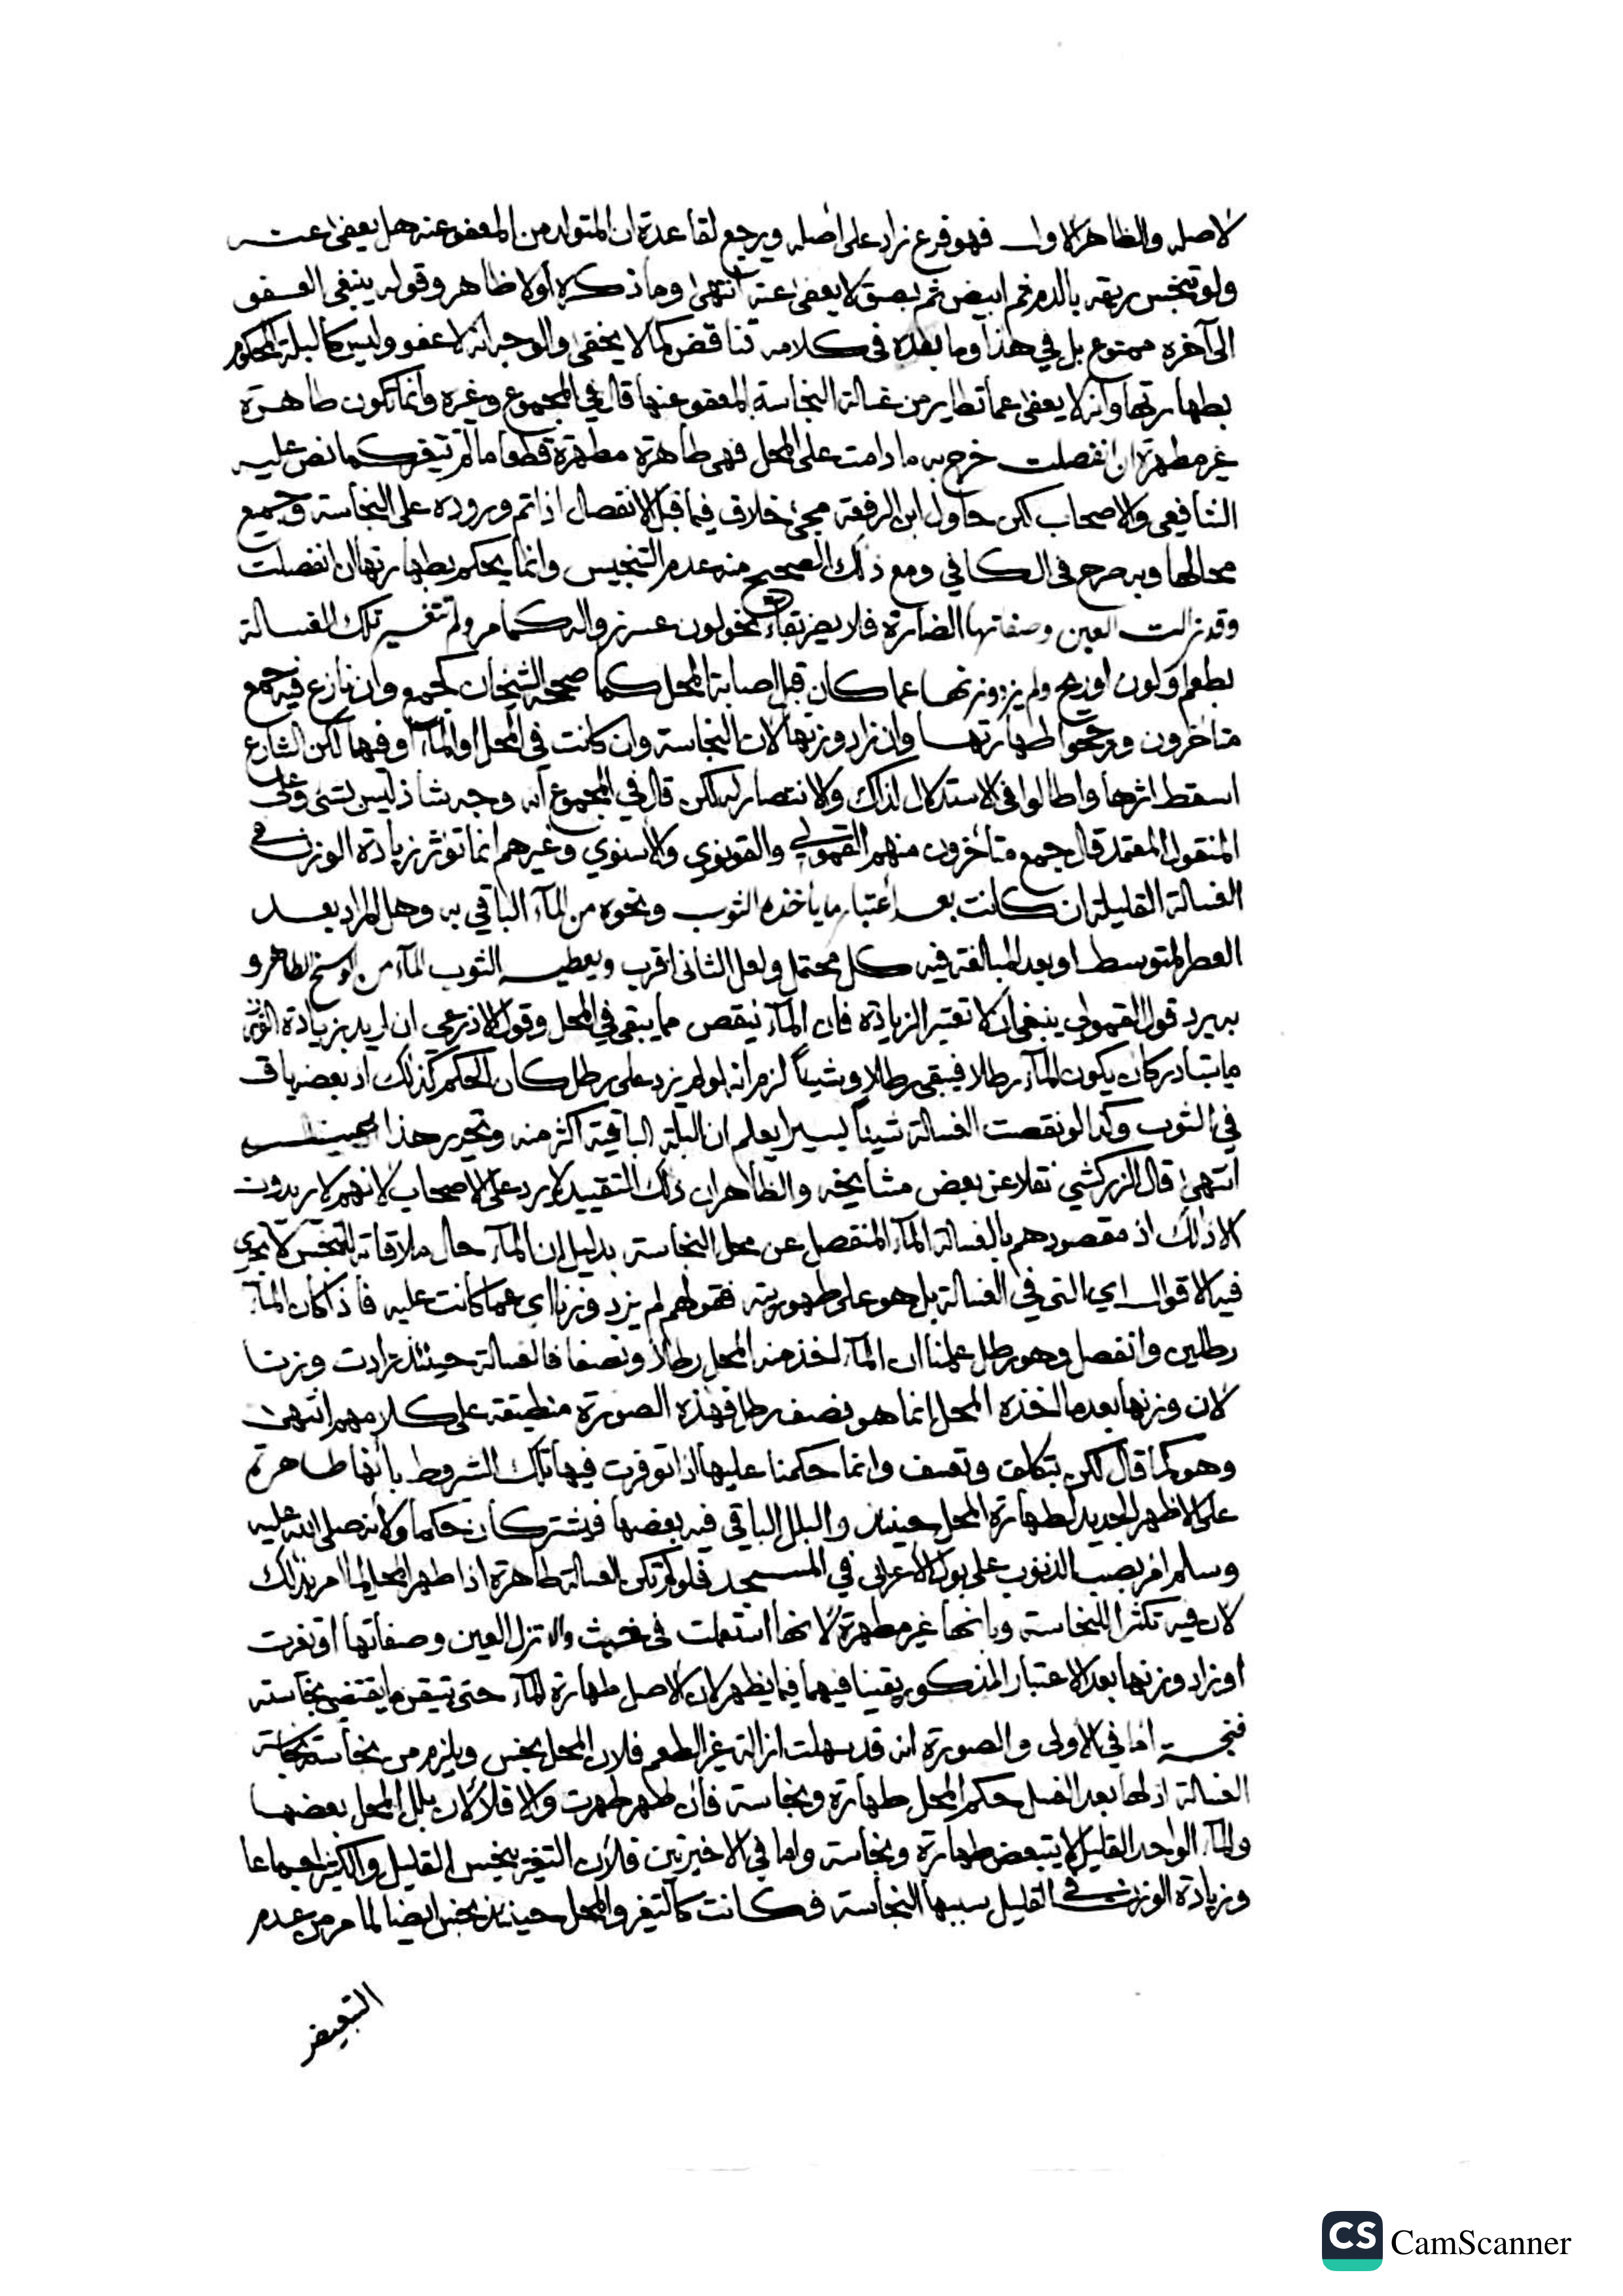 لاصله والظاهر الاول فهو فرع زاد على اصله ويرجع لقاعدة ان المتولد من المعفو عنه هل يعفى عنه
ولو تنجس ريقه بالدم ثم ابيض ثم بصق لا يعفى عنه انتهى وما ذكره أولا ظاهر وقوله ينبغي العفو
الى آخره ممنوع بل في هذا وما بعده في كلامه تناقض كما لا يخفى والوجه انه لا عفو وليس كالبلة المحكوم
بطهارتها وانه لا يعفى عما تطاير من غسالة النجاسة المعفو عنها قال في المجموع وغيره وانما تكون طاهرة
غير مطهرة ان انفصلت خرج به ما دامت على المحل فهي طاهرة مطهرة قطعا ما لم تتغير كما نص عليه
الشافعي والاصحاب لكن حاول ابن الرفعة مجئ خلاف فيما قبل الانفصال اذا تم وروده على النجاسة وجميع
محالها وبه صرح في الكافي ومع ذلك الصحيح منه عدم التنجيس وانما يحكم بطهارتها ان انفصلت
وقد زالت العين وصفاتها الضارة فلا يضر بقاء نحو لون عسر زواله كما مر ولم تتغير تلك الغسالة
بطعم او لون او ريح ولم يزد وزنها عما كان قبل اصابة المحل كما صححه الشيخان كجمع وان نازع فيه جمع
متاخرون ورجحوا طهارتها وان زاد وزنها لان النجاسة وان كانت في المحل او الماء او فيهما لكن الشارع
اسقط اثرها واطالوا في الاستدلال لذلك والانتصار له لكن قال في المجموع انه وجه شاذ ليس بشئ وعلى
المنقول المعتمد قال جمع متأخرون منهم القمولي والقونوي والاسنوي وغيرهم انما تؤثر زيادة الوزن في
الغسالة القليلة ان كانت بعد اعتبار ما يأخذه الثوب ونحوه من الماء الباقي به وهل المراد بعد
العصر المتوسط او بعد المبالغة فيه كل محتمل ولعل الثاني اقرب ويعطيه الثوب الماء من الوسخ الطاهر و
به يرد قول القمولي ينبغي ان لا تعتبر الزيادة فان الماء ينقص مما يبقى في المحل وقول الاذرعي ان اريد بزيادة الوزن
ما يتبادر كان يكون الماء رطلا فيبقى رطلا وشيئاً لزم انه لو لم يزد على رطل كان الحكم كذلك اذ بعضه باق
في الثوب وكذا لو نقصت الغسالة شيئاً يسيرا يعلم ان البلة الباقية اكثر منه وتحرير هذا
انتهى قال الزركشي نقلا عن بعض مشايخه والظاهر ان ذلك التقييد لا يرد على الاصحاب لانهم لا يريدون
الا ذلك اذ مقصودهم بالغسالة الماء المنفصل عن محل النجاسة بدليل ان الماء حال ملاقاته للنجس لا تجري
فيه الاقوال اي التي في الغسالة بل هو على طهوريته فقولهم لم يزد وزنها اي عما كانت عليه فاذا كان الماء
رطلين وانفصل وهو رطل علمنا ان الماء اخذ منه المحل رطلا ونصفا فالغسالة حينئذ زادت وزنا
لان وزنها بعد ما اخذه المحل انما هو نصف رطل فهذه الصورة منطبقة على كلامهم انتهى
وهو كما قال لكن بتكلف وتعسف وانما حكمنا عليها اذا توفرت فيها تلك الشروط بانها طاهرة
على الاظهر الجديد لطهارة المحل حينئذ والبلل الباقي فيه بعضها فيشتركان حكما ولانه صلى الله عليه
وسلم امر بصب الذنوب على بول الاعرابي في المسجد فلو لم تكن الغسالة طاهرة اذا طهر المحل لما امر بذلك
لان فيه تكثيرا للنجاسة وبانها غير مطهرة لانها استعملت في خبث والا تزل العين وصفاتها او تغيرت
او زاد وزنها بعد الاعتبار المذكور يقينا فيهما فيما يظهر لان الاصل طهارة الماء حتى تتيقن ما يقتضي نجاسته
فنجسة اما في الاولى والصورة انه قد سهلت ازالة غير الطعم فلان المحل نجس ويلزم من نجاسته نجاسة
الغسالة اذ لها بعد الغسل حكم المحل طهارة ونجاسة فان طهر طهرت والا فلا لان بلل المحل بعضها
والماء الواحد القليل لا يتبعض طهارة ونجاسة واما في الاخيرتين فلان التغير ينجس القليل والكثير اجماعا
وزيادة الوزن في القليل سببها النجاسة فكانت كالتغير والمحل حينئذ نجس ايضا لما مر من عدم
التبعيض
CS CamScanner